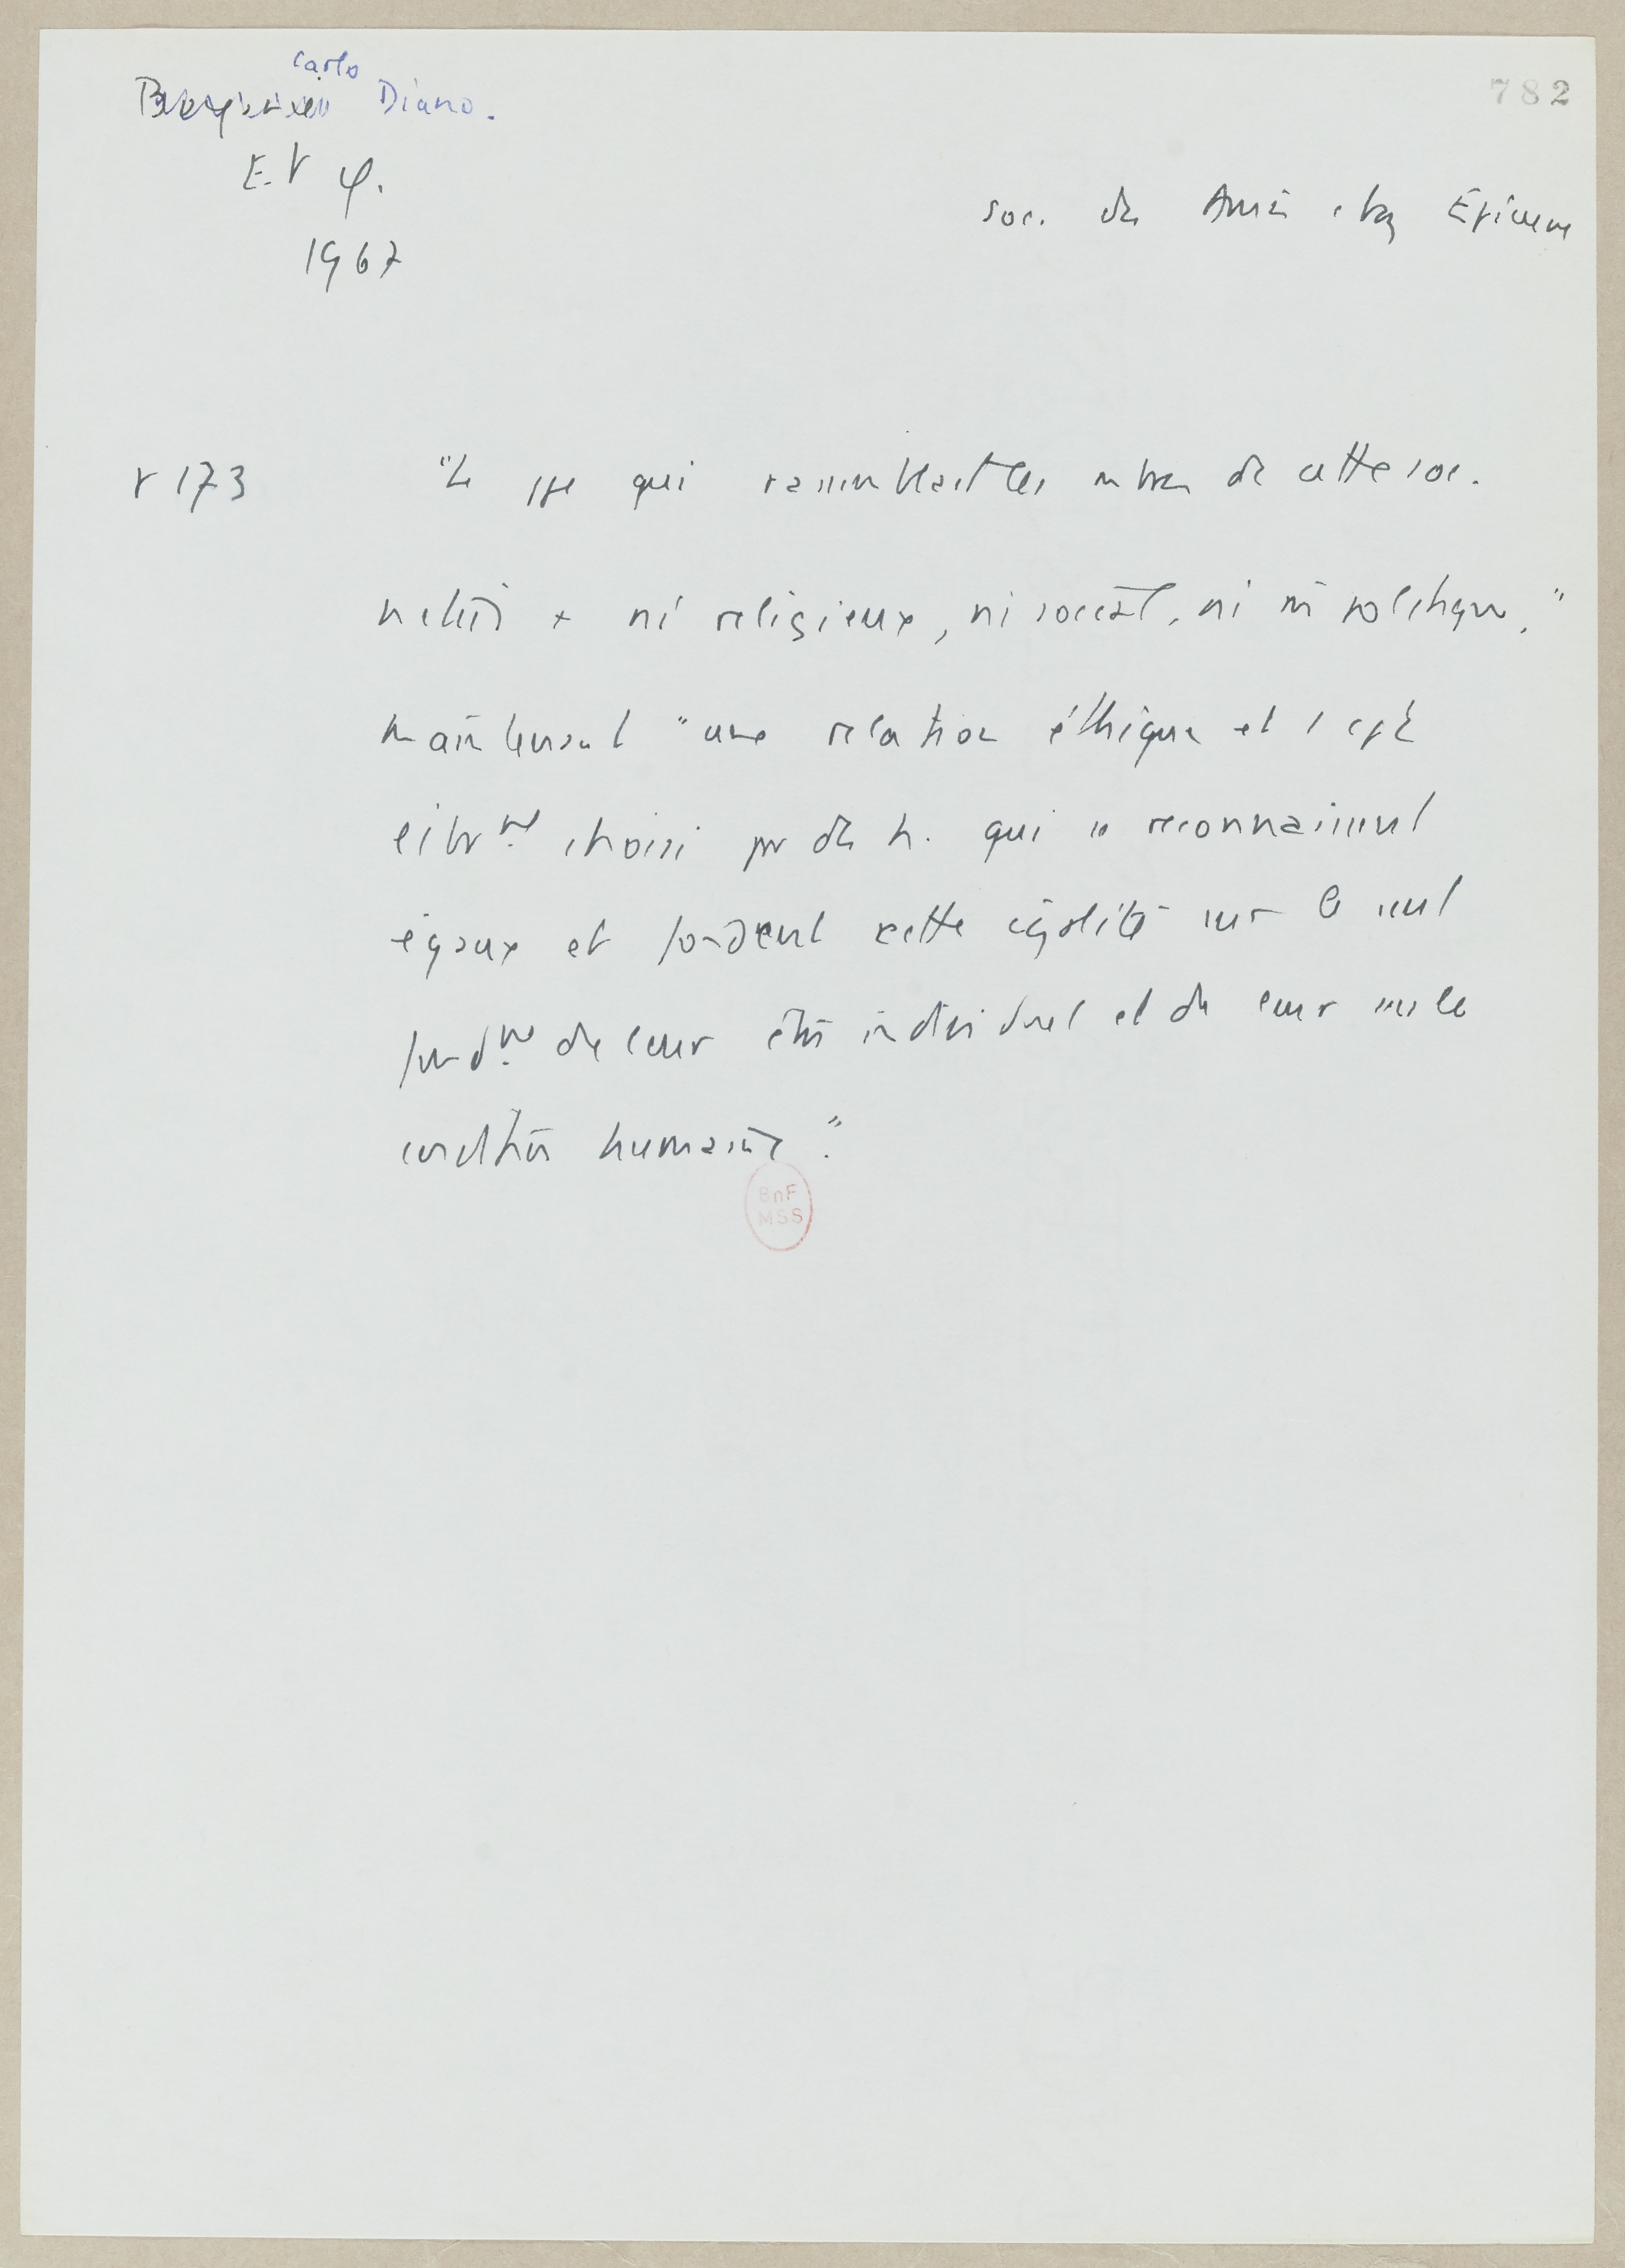 Carlo
Diano.
782
E. P φ.
1967
soc. des Amis chez Epicure
p 173 "Le ppe qui rassemblait les mbres de cette soc.
n'était + ni religieux, ni social, ni politique."
maintenant "une relation éthique et
librmt choisi pr des h. qui se reconnaissent
égaux et fondent cette égalité sur le seul
fondmt de leur être individuel et de leur seule
condition humaine."
BnF
MSS